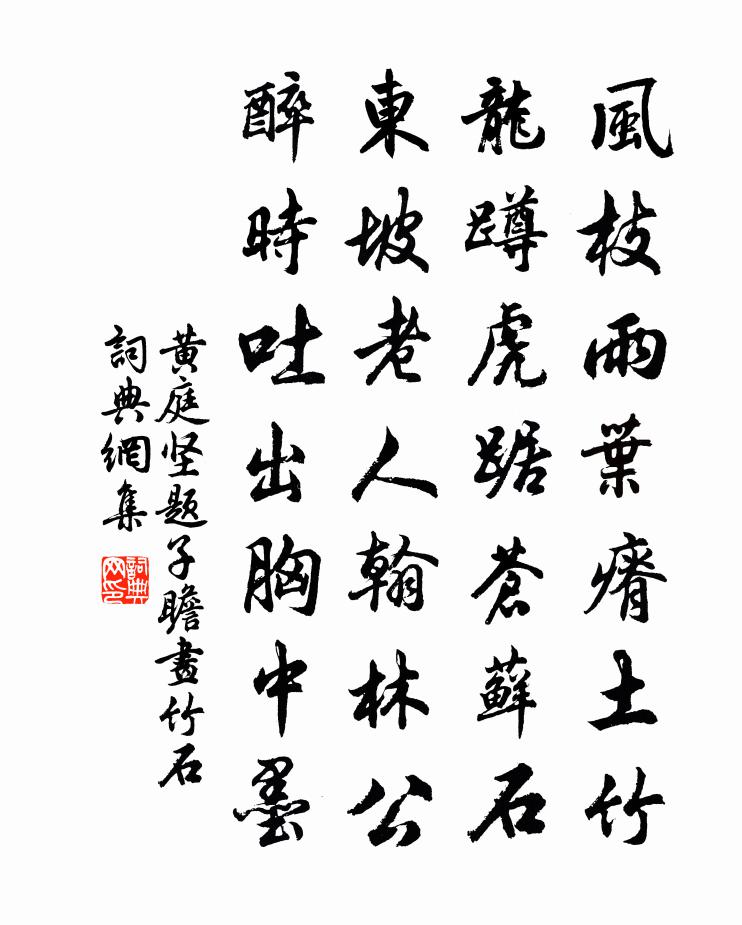 風枝雨葉瘠土竹
龍蹲虎踞蒼蘚石
東坡老人翰林公
醉時吐出胸中墨
黄庭坚题子瞻畫竹石
詞典網集
詞典
网印